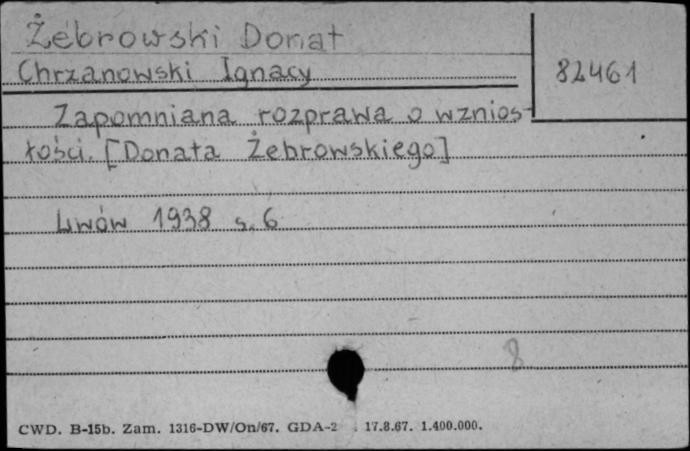 Żebrowski Donat
Chrzanowski Ignacy
82461
Zapomniana rozprawa o wznios-
łości. [Donata Żebrowskiego]
Lwów 1938 s. 6
8
CWD. B-15b. Zam. 1316-DW/On/67. GDA-2 . 17.8.67. 1.400.000.